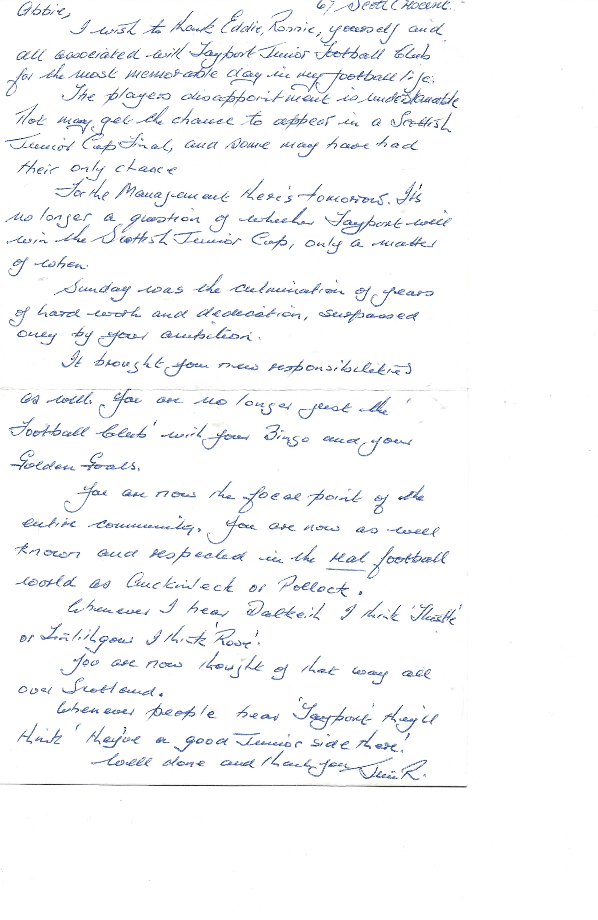 Abbie,
67 Scott
I wish to thank Eddie, Ronnie, yourself and
all associated with Tayport Junior Football Club
for the most memorable day in my football life.
The players disappointment is understandable
Not many get the chance to appear in a Scottish
Junior Cup Final, and some may have had
their only chance
For the Management there's tomorrow. It's
no longer a question of whether Tayport will
win the Scottish Junior Cup, only a matter
of when.
Sunday was the culmination of years
of hard work and dedication, surpassed
only by your ambition.
It brought you new responsibilities
as well. You are no longer just the
Football Club' with your Bingo and your
Golden Goals.
You are now the focal point of the
entire community. You are now as well
known and respected in the real football
world as Auckinleck or Pollock.
Whenever I hear Dalkeith I think 'Thistle'
or Linlithgow I think 'Rose'.
You are now thought of that way all
over Scotland.
Whenever people hear 'Tayport' they'll
think 'they've a good Junior side there'.
Well done and thank you Jim R.